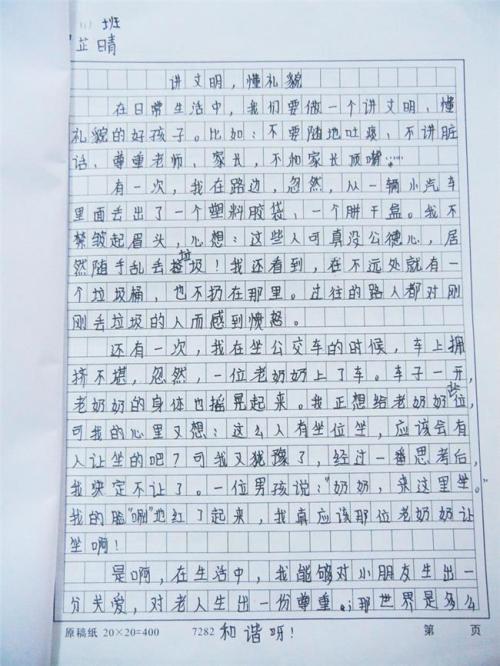 (1) 班
芷晴
讲文明,懂礼貌
在日常生活中,我们要做一个讲文明、懂
礼貌的好孩子。比如:不要随地吐痰、不讲脏
话、尊重老师、家长,不和家长顶嘴……
有一次,我在路边,忽然,从一辆小汽车
里面丢出了一个塑料胶袋、一个饼干盒。我不
禁皱起眉头,心想:这些人可真没公德心,居
然随手乱丢垃圾!我还看到,在不远处就有一
个垃圾桶,也不扔在那里。过往的路人都对刚
刚丢垃圾的人而感到愤怒。
还有一次,我在坐公交车的时候,车上拥
挤不堪,忽然,一位老奶奶上了车。车子一开,
老奶奶的身体也摇晃起来。我正想给老奶奶让位,
可我的心里又想:这么人有坐位坐,应该会有
人让坐的吧?可我又犹豫了,经过一番思考后,
我决定不让了。一位男孩说:“奶奶,来这里坐。”
我的脸“唰”地红了起来,我真应该那位老奶奶让
坐啊!
是啊,在生活中,我能够对小朋友生出一
分关爱,对老人生出一份尊重。那世界是多么
和谐呀!
原稿纸 20×20=400 7282 第 页